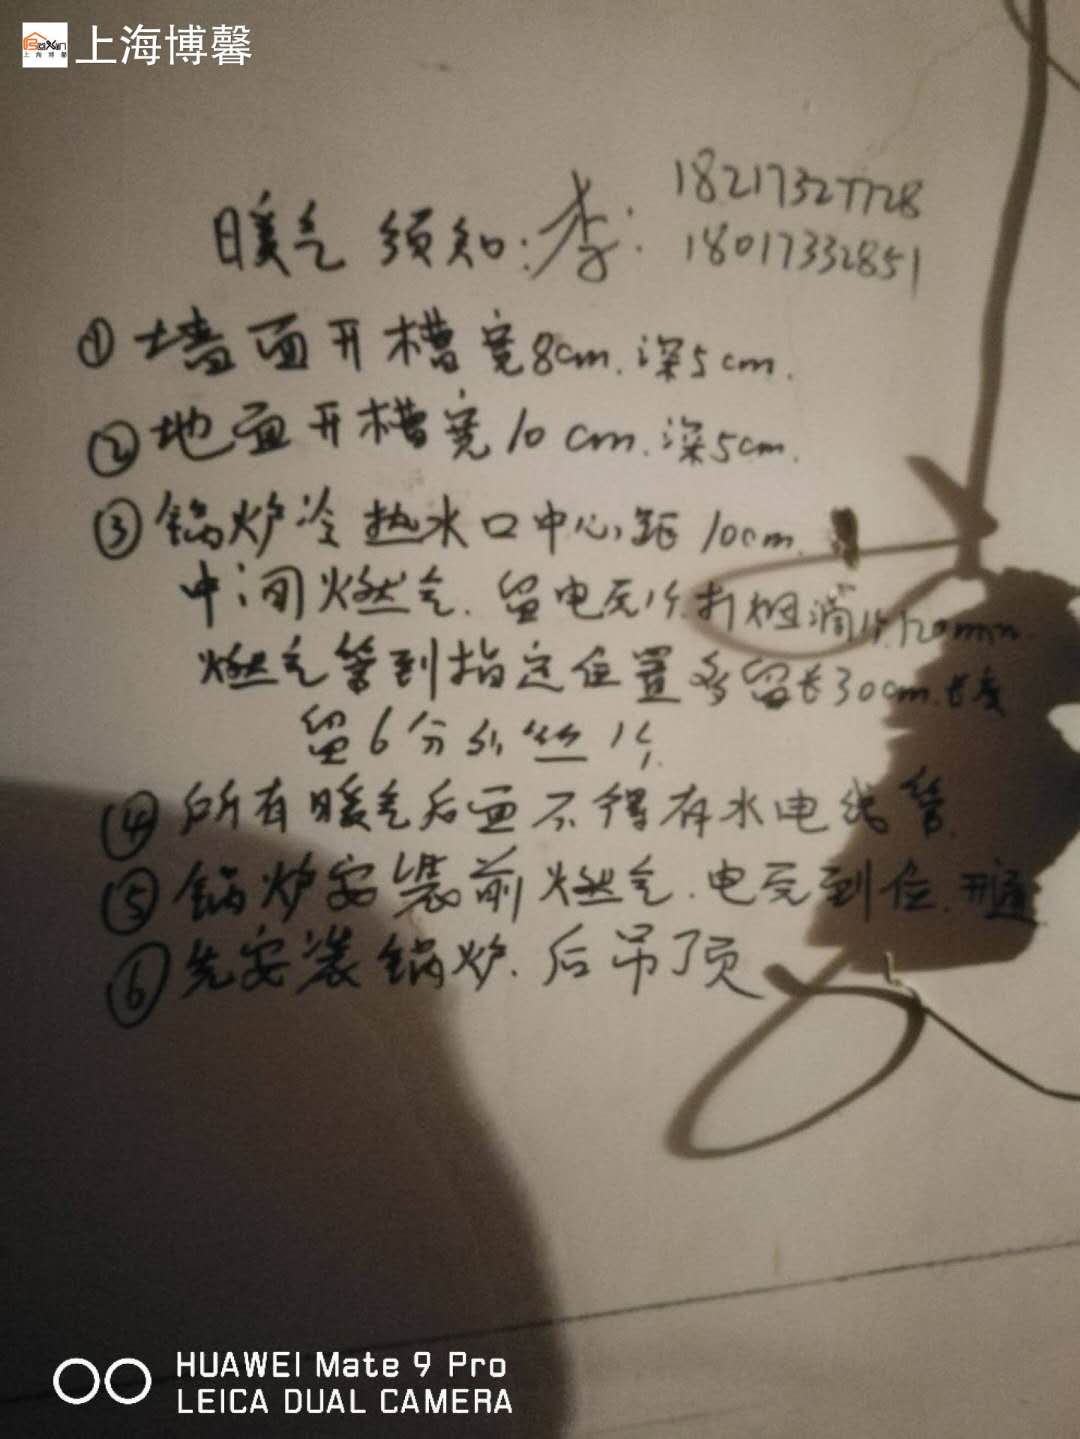 BoXin
上海博馨
上海博馨
18217327728
暖气须知:李:
18017332851
①墙面开槽宽8cm.深5cm.
②地面开槽宽10cm.深5cm.
③锅炉冷热水口中心距10cm.
中间燃气.留电瓦1个.打烟洞1个.120mm.
燃气管到指定位置多留长30cm.长度
留6分外丝1个
④所有暖气后面不得有水电线管.
⑤锅炉安装前燃气.电瓦到位.开通
⑥先安装锅炉.后吊顶
HUAWEI Mate 9 Pro
LEICA DUAL CAMERA